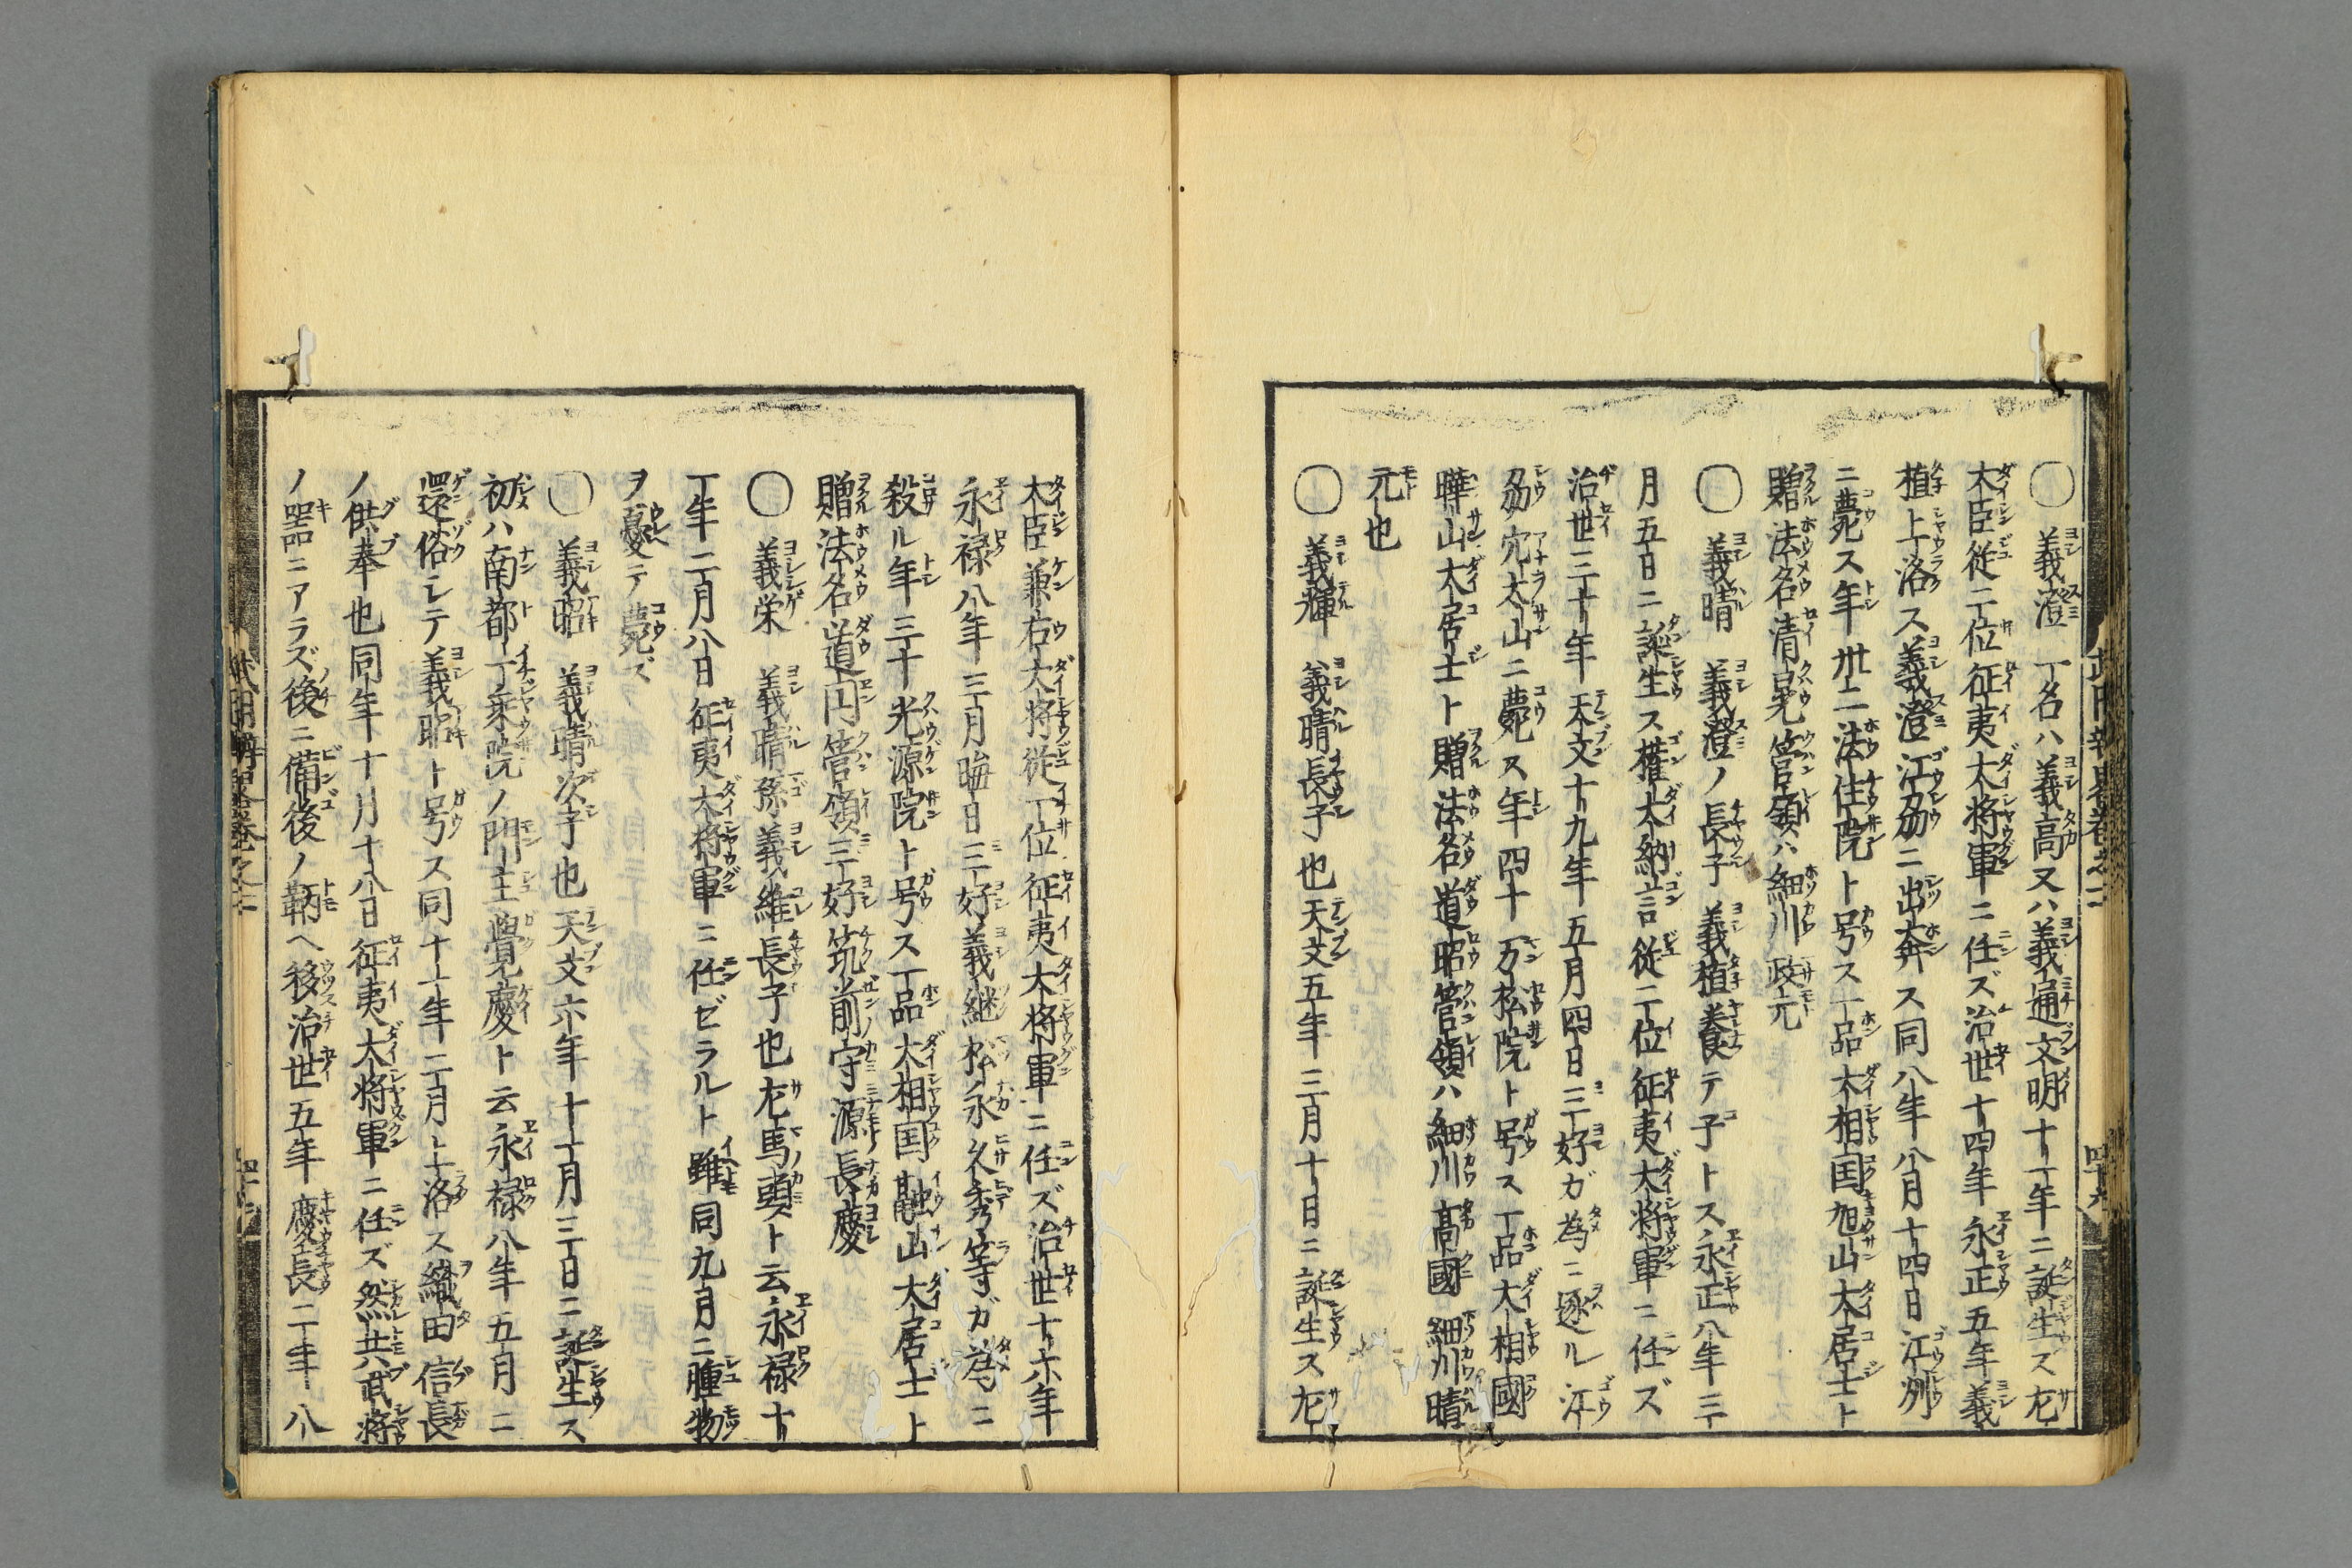 〇 義澄 一名ハ義高又ハ義通文明十一年ニ誕生ス左
大臣従二位征夷大将軍ニ任ズ治世十四年永正五年義
植上洛ス義澄江刕ニ出奔ス同八年八月十四日江州
ニ薨ス年卅二法住院ト号ス一品太相国旭山大居士ト
贈法名清晃管領ハ細川政元
〇 義晴 義澄ノ長子義植養テ子トス永正八年三
月五日ニ誕生ス権大納言従二位征夷大将軍ニ任ズ
治世三十年天文十九年五月四日三好ガ為ニ逐ル江
刕穴太山ニ薨ス年四十万松院ト号ス一品大相國
曄山大居士ト贈法名道昭管領ハ細川高國細川晴
元也
〇 義輝 義晴長子也天文五年三月十日ニ誕生ス左
大臣兼右大将従一位征夷大将軍ニ任ズ治世十六年
永禄八年三月晦日三好義継松永久秀等ガ為ニ
殺ル年三十光源院ト号ス一品大相国融山大居士ト
贈法名道円管領三好筑前守源長慶
〇 義栄 義晴孫義維長子也左馬頭ト云永禄十
一年二月八日征夷大将軍ニ任ゼラルト雖同九月ニ腫物
ヲ憂テ薨ズ
〇 義昭 義晴次子也天文六年十一月三日ニ誕生ス
初ハ南都一乗院ノ門主覺慶ト云永禄八年五月ニ
還俗シテ義昭ト号ス同十一年二月上洛ス織田信長
ノ供奉也同年十月十八日征夷大将軍ニ任ズ然共武将
ノ器ニアラズ後ニ備後ノ鞆ヘ移治世五年慶長二年八